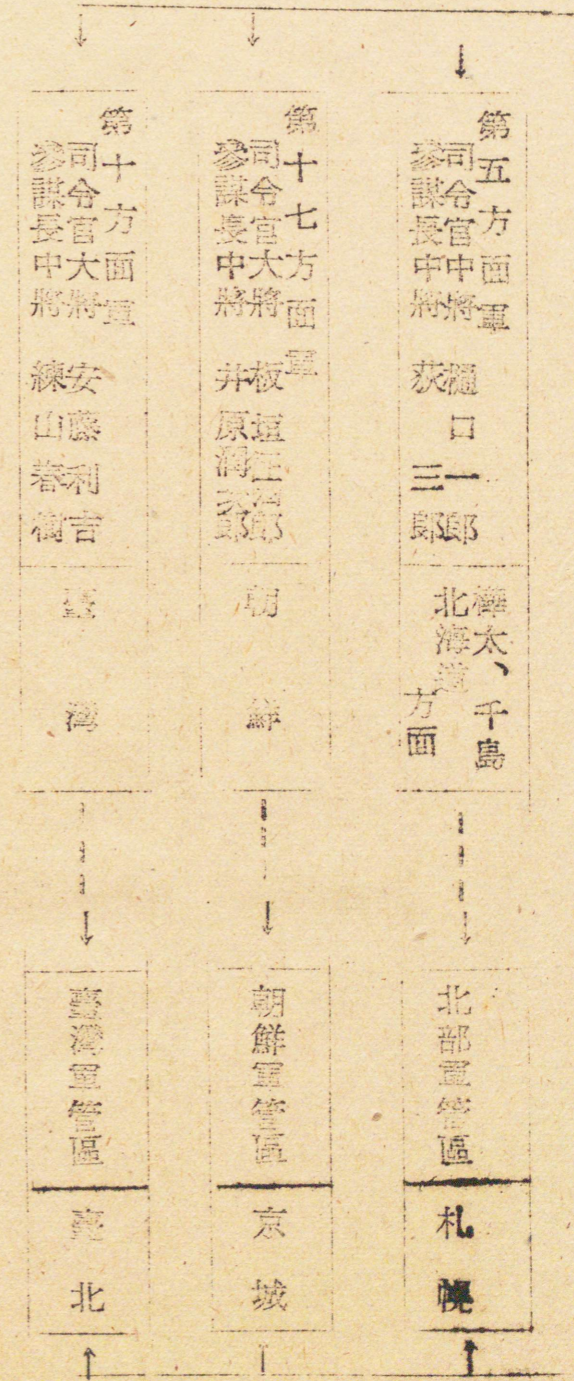 第五方面軍
司令官中將 樋口一郎
參謀長中將 萩三郎
樺太、千島
北海道方面
北部軍管區
札幌
第十七方面軍
司令官大將 板垣征四郎
參謀長中將 井原潤次郎
朝鮮
朝鮮軍管區
京城
第十方面軍
司令官大將 安藤利吉
參謀長中將 諫山春樹
臺灣
臺灣軍管區
臺北